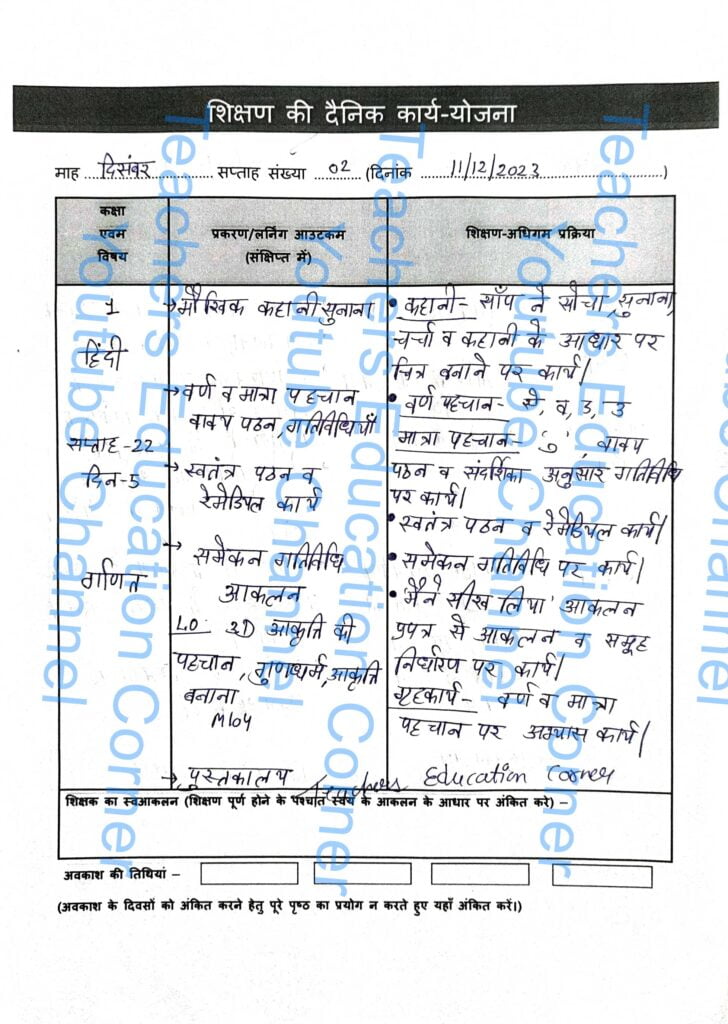 शिक्षण की दैनिक कार्य-योजना
माह दिसंबर सप्ताह संख्या 02 (दिनांक 11/12/2023)
कक्षा
एवम
विषय
प्रकरण/लर्निंग आउटकम
(संक्षिप्त में)
शिक्षण-अधिगम प्रक्रिया
1
हिंदी
सप्ताह-22
दिन-5
गणित
→ मौखिक कहानी सुनाना
→ वर्ण व मात्रा पहचान
वाक्य पठन, गतिविधियाँ
→ स्वतंत्र पठन व
रेमेडियल कार्य
→ समेकन गतिविधि
आकलन
LO: 2D आकृति की
पहचान, गुणधर्म, आकृति
बनाना
M104
→ पुस्तकालय
• कहानी- साँप ने सोचा सुनाना,
चर्चा व कहानी के आधार पर
चित्र बनाने पर कार्य|
• वर्ण पहचान- से, व, ड, उ
मात्रा पहचान- 'ु', वाक्य
पठन व संदर्शिका अनुसार गतिविधि
पर कार्य|
• स्वतंत्र पठन व रेमेडियल कार्य|
• समेकन गतिविधि पर कार्य|
• 'मैने सीख लिया' आकलन
प्रपत्र से आकलन व समूह
निर्धारण पर कार्य|
गृहकार्य- वर्ण व मात्रा
पहचान पर अभ्यास कार्य|
Teachers Education Corner
शिक्षक का स्वआकलन (शिक्षण पूर्ण होने के पश्चात स्वयं के आकलन के आधार पर अंकित करे) –
अवकाश की तिथियां –
(अवकाश के दिवसों को अंकित करने हेतु पूरे पृष्ठ का प्रयोग न करते हुए यहाँ अंकित करें।)
Teachers Education Corner
Youtube Channel
Teachers Education Corner
Youtube Channel
Teachers Education Corner
Youtube Channel